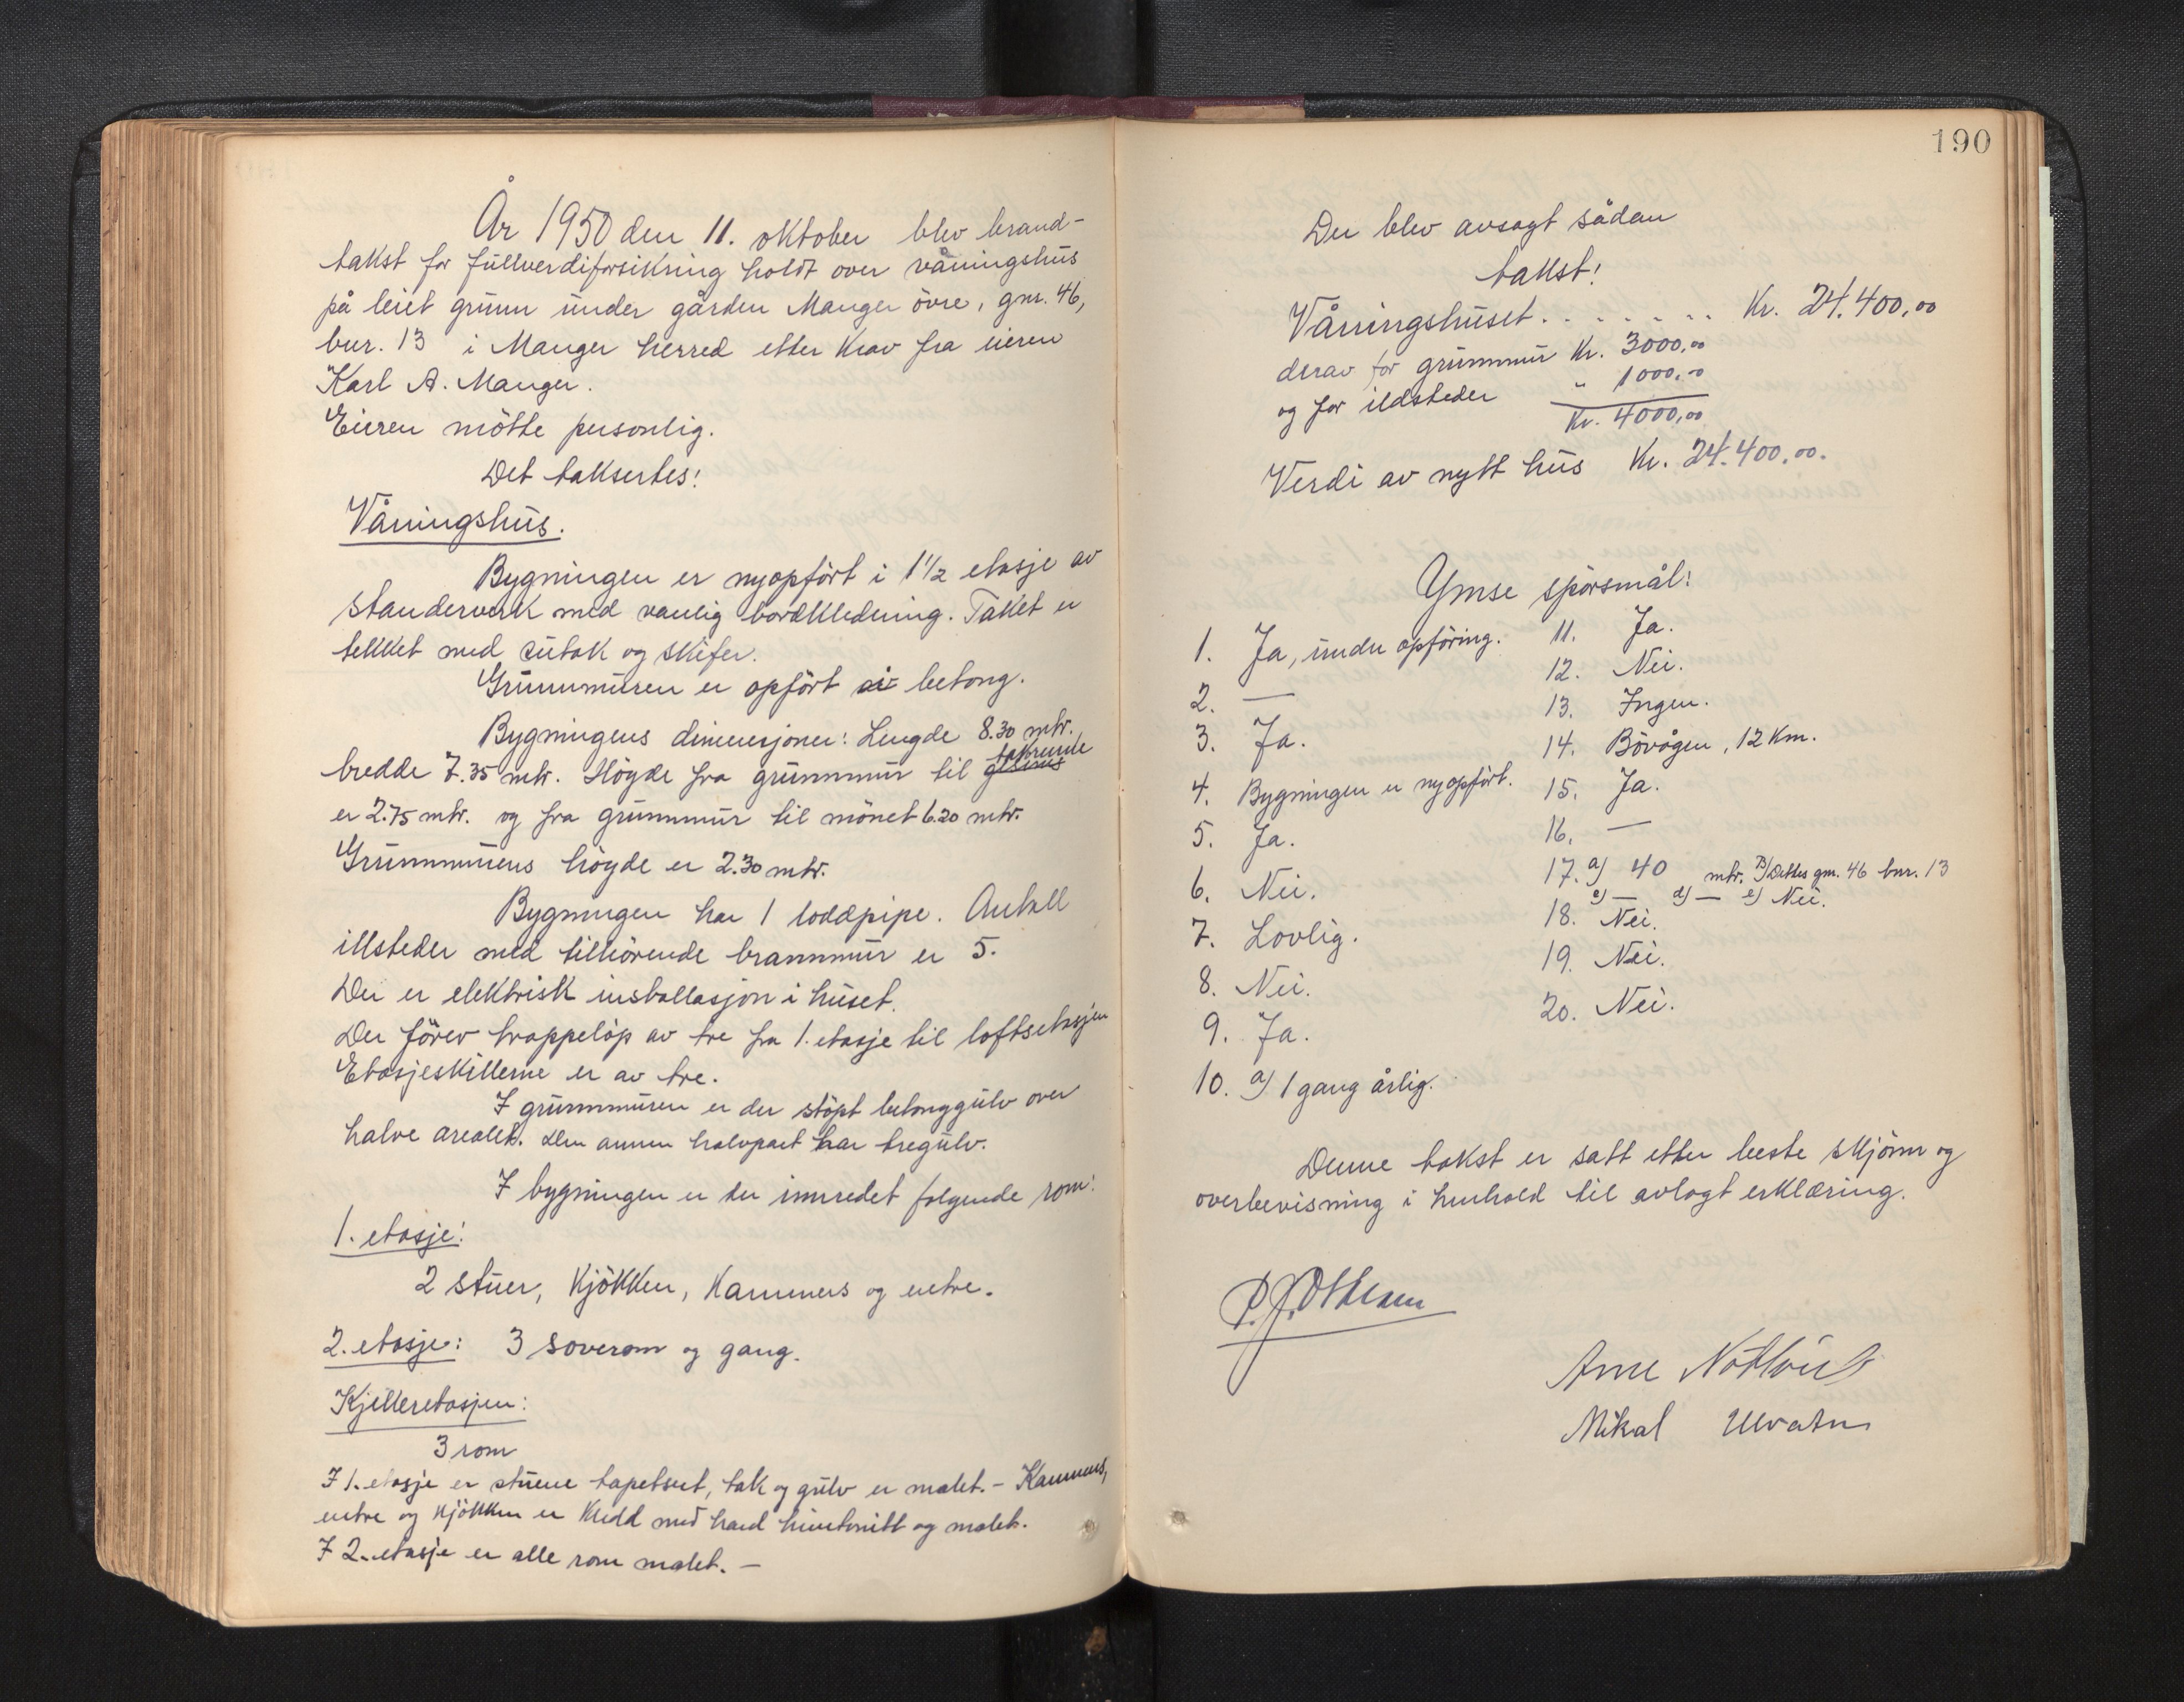 År 1950 den 11. oktober blev brand-
takst for fullverdiforsikring holdt over våningshus
på leiet grunn under gården Manger övre, gnr. 46,
bnr. 13 i Manger herred etter krav fra eieren
Karl A. Manger.
Eieren mötte personlig.
Det taksertes:
Våningshus.
Bygningen er nyopfört i 1 1/2 etasje av
standerverk med vanlig bordkledning. Taket er
tekket med sutak og skifer.
Grunnmuren er opfört av betong.
Bygningens dimensjoner: Lengde 8.30 mtr.
takrende
bredde 7.35 mtr. Höyde fra grunnmur til
er 2.75 mtr. og fra grunnmur til mönet 6.20 mtr.
Grunnmurens höyde er 2.30 mtr.
Bygningen har 1 loddpipe. Antall
illsteder med tilhörende brannmur er 5.
Der er elektrisk installasjon i huset.
Der förer trappelöp av tre fra 1. etasje til loftsetasjen
Etasjeskillerne er av tre.
I grunnmuren er der stöpt betonggulv over
halve arealet. Den annen halvpart har tregulv.
I bygningen er der innredet folgende rom:
1. etasje:
2 stuer, kjökken, kammers og entre.
2. etasje: 3 soverom og gang.
Kjelleretasjen:
3 rom
I 1. etasje er stuene tapetsert, tak og gulv er malet. - Kammers,
entre og kjökken er kledd med hard huntonitt og malet.
I 2. etasje er alle rom malet. -
190
Der blev avsagt sådan
takst:
Våningshuset . . . . . . . . Kr. 24.400,00
derav for grunnmur Kr. 3000,00
og for ildsteder " 1000,-
Kr. 4000,00
Verdi av nytt hus Kr. 24.400,00.
Ymse spörsmål:
1. Ja, under opföring.
2. —
3. Ja.
4. Bygningen er nyopfört.
5. Ja.
6. Nei.
7. Lovlig.
8. Nei.
9. Ja.
10. a) 1 gang årlig.
11. Ja.
12. Nei.
13. Ingen.
14. Bövågen, 12 km.
15. Ja.
16. —
17. a) 40 mtr. b) Dettes gnr. 46 bnr. 13
c) — d) — e) Nei.
18. Nei.
19. Nei.
20. Nei.
Denne takst er satt etter beste skjönn og
overbevisning i henhold til avlagt erklæring.
Arne
Mikal Ulvatn